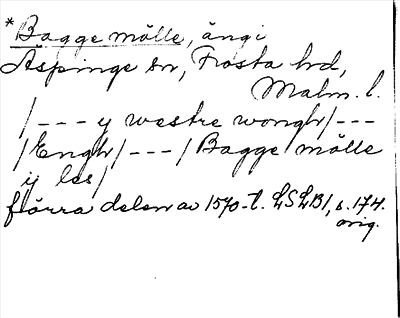 *Bagge mölle, ängi
Äspinge sn, Frosta hrd,
Malm. l.
/--- y westre wongh/---
/Engh/---/Bagge mölle
ij les/
förra delen av 1570-t. LSLB1, s. 174.
orig.